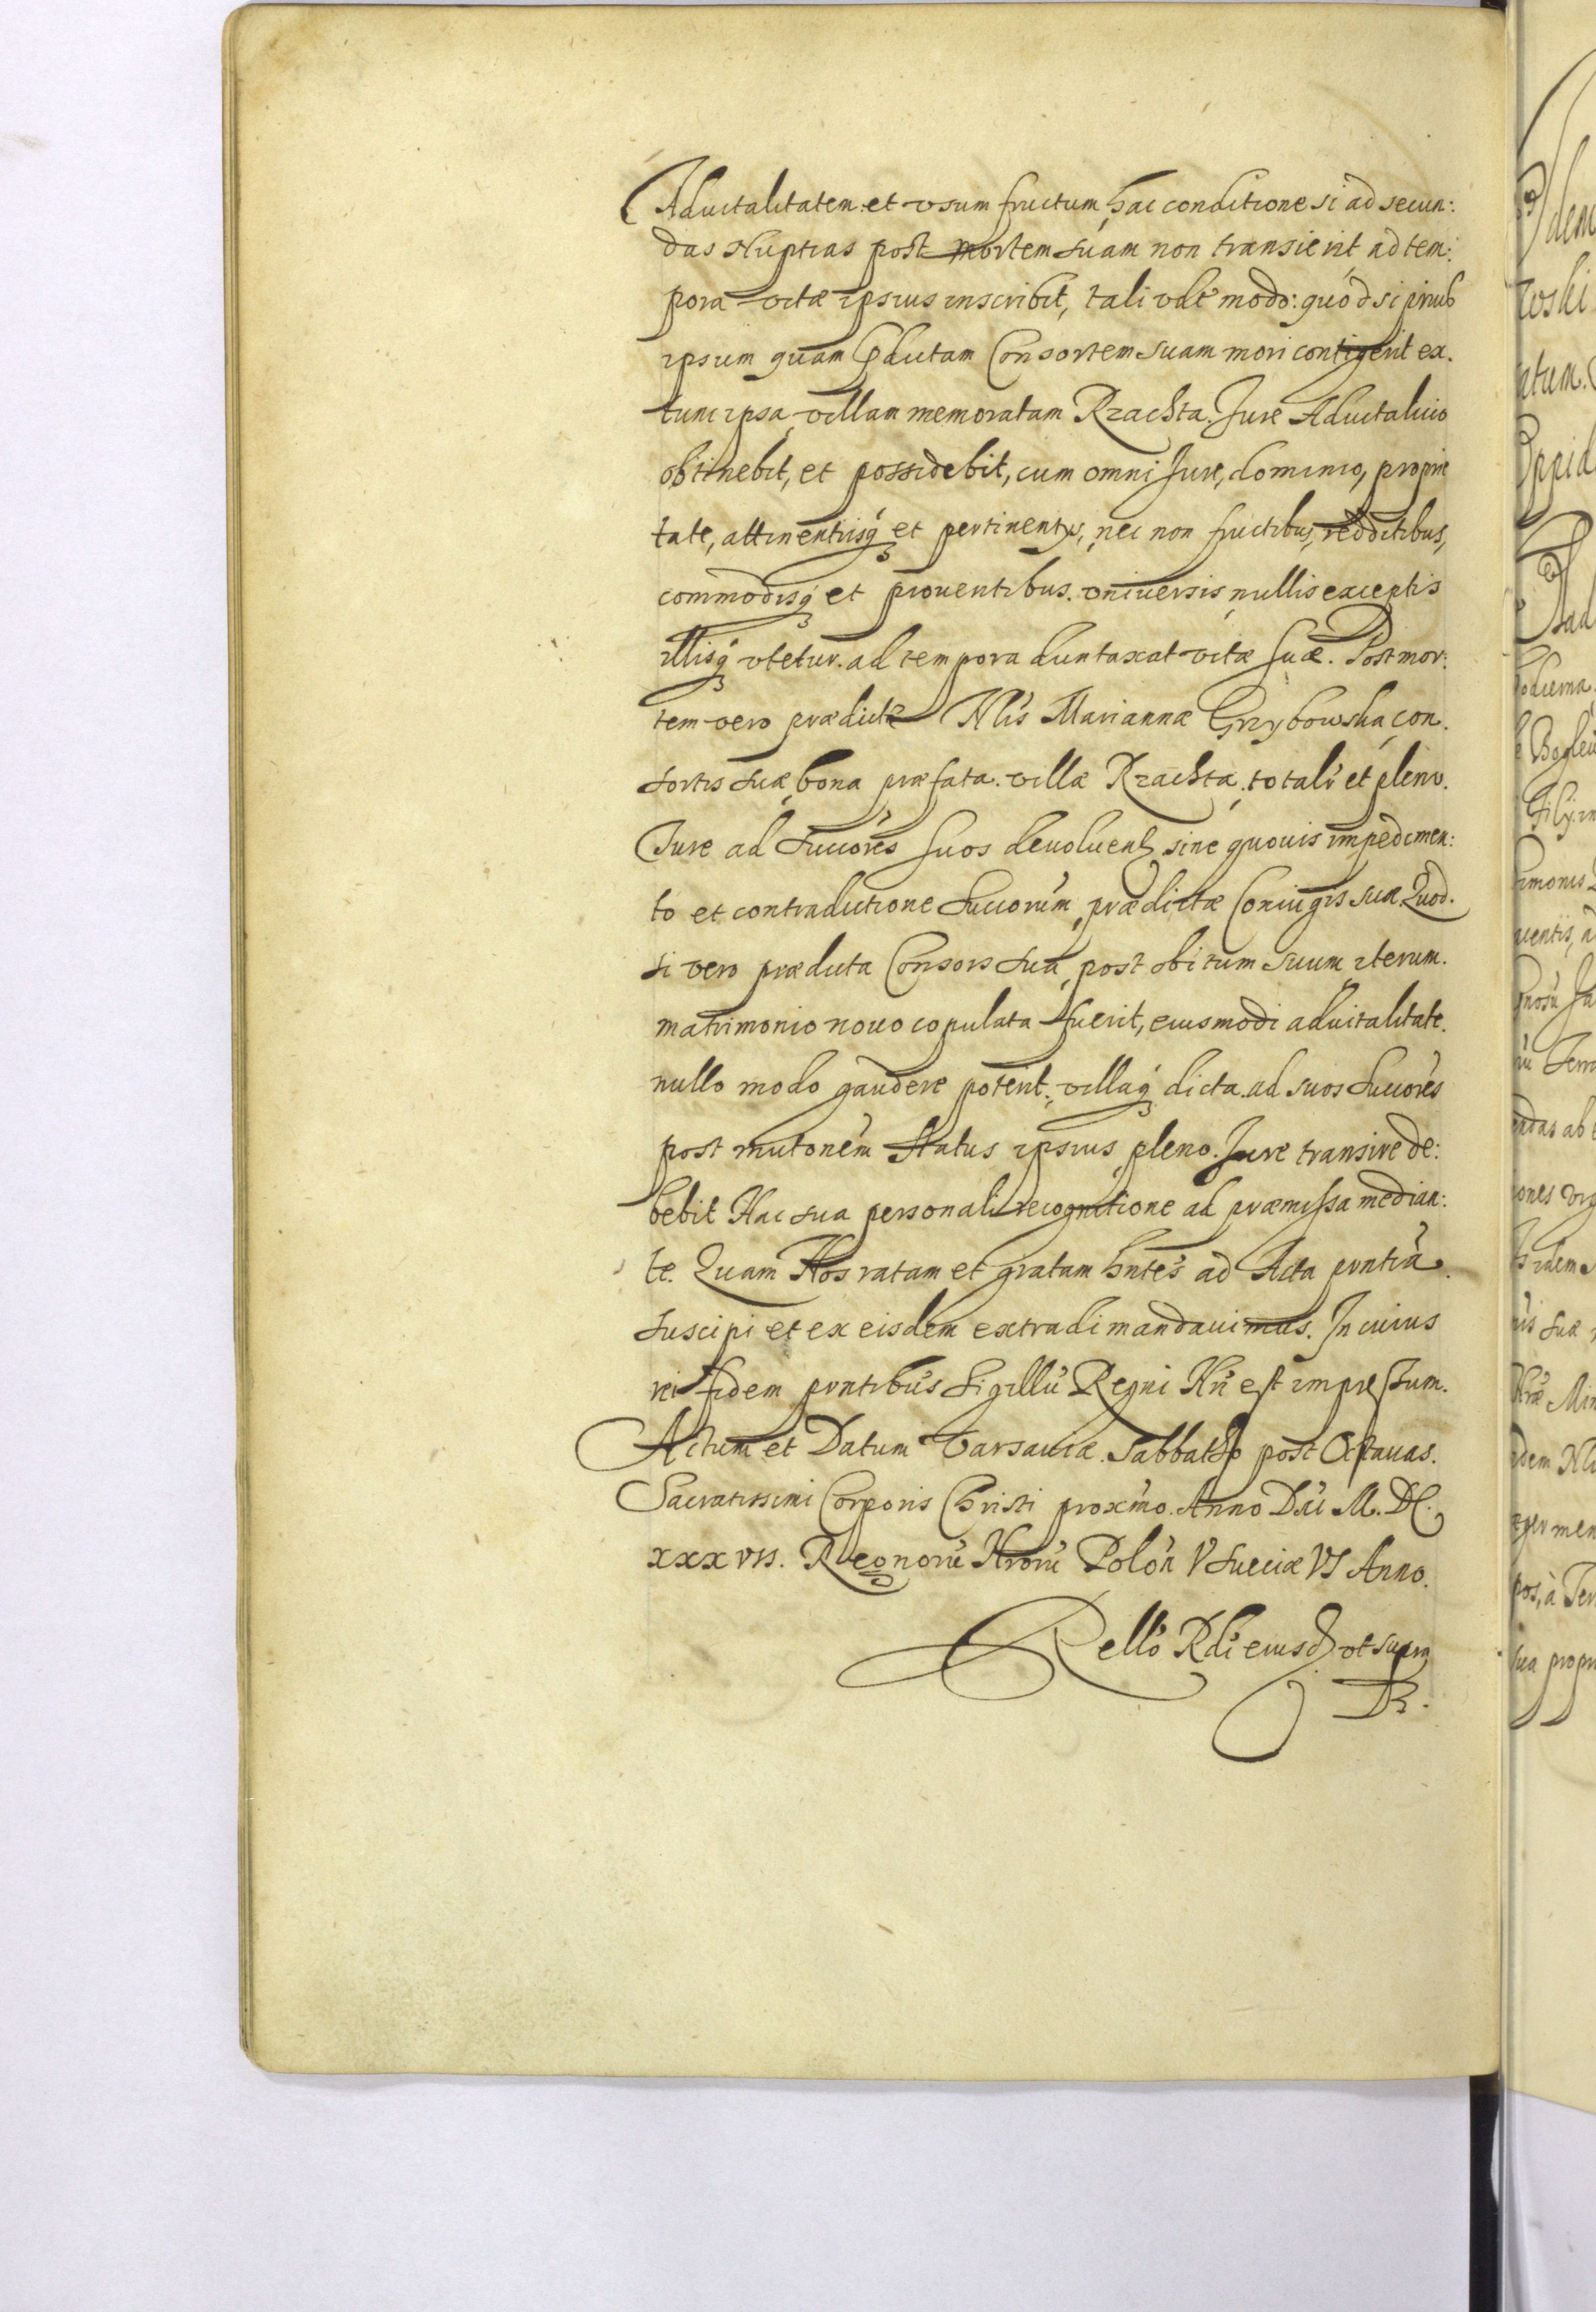 Aduitalitatem et vsum fructum, hac conditione si ad secun:
das Nuptias post mortem suam non transierit ad tem:
pora vitæ ipsius inscribit, tali vdt modo: quód si prius
ipsum quam pdictam Consortem suam mori contigerit ex.
tunc ipsa, villam memoratam Rzachta. Jure Aduitalitio
obtinebit, et possidebit, cum omni Jure, dominio, proprie
tate, attinentiisq et pertinentijs, nec non fructibus, redditibus,
commodisq et prouentibus. vniuersis, nullis exceptis
illisq vtetur. ad tempora duntaxat vitæ suæ. Post mor:
tem vero prædictæ Nlis Mariannæ Grzybowska, con.
sortis suæ, bona præfata. villæ Rzachta, totali et pleno.
Jure ad Succores suos deuoluent, sine quouis impedimen:
to et contradictione Succorum, prædictæ Coniugis suæ. Quod.
si vero prædicta Consors sua, post obitum suum, iterum.
matrimonio nouo copulata fuerit, eiusmodi aduitalitate.
nullo modo gaudere poterit, villaq dicta ad suos Succores
post mutonem Status ipsius, pleno. Jure transire de:
bebit Hac sua personali recognitione ad præmissa median:
te. Quam Nos ratam et gratam hntes ad Acta pntia.
suscipi et ex eisdem extradi mandauimus. In cuius
rei fidem pntibus Sigillu Regni Nri est impressum.
Actum et Datum Varsauiæ. Sabbatho post Octauas.
Sacratissimi Corporis Christi proximo. Anno Dni M. DC.
xxxvII. Regnoru Nroru Polon V Sueciæ VI Anno.
Rello Rdi eiusd vt supra